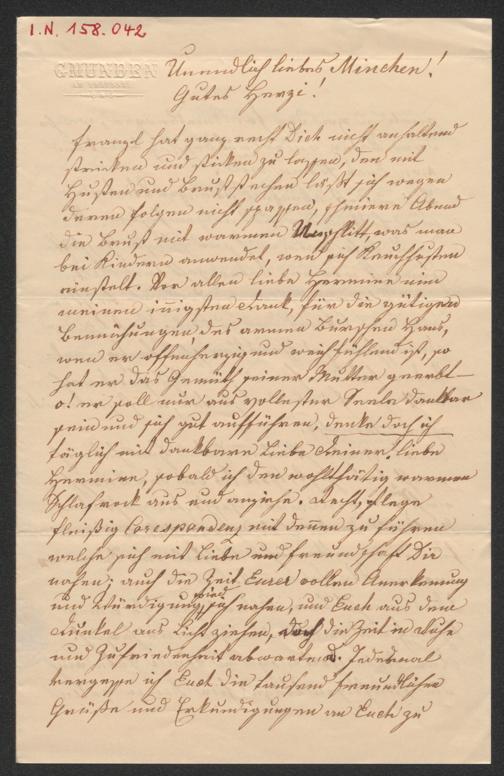 I.N. 158.042
GMUNDEN
Unendlich liebes Minchen!
Gutes Herzi!
Franzl hat ganz recht Dich nicht anhaltend
stricken und sticken zu lassen, den mit
Husten und Bruststechen läßt sich wegen
deren Folgen nicht spassen, schmiere Abend
die Brust mit warmen Unschlitt, was man
bei Kindern anwendet, wen sich Keuchhusten
einstelt. Vor allen liebe Hermine nim
meinen inigsten Dank, für die gütigen
Bemühungen, des armen Burschen Hans,
wen er offenherzig und weichfühlend ist, so
hat er das Gemüth seiner Mutter geerbt —
o! er soll nur aus vollester Seele dankbar
sein und sich gut aufführen, denke doch ich
täglich mit dankbare Liebe Deiner, liebe
Hermine, sobald ich den wohlthätig warmen
Schlafrock aus und anziehe. Recht, pflege
fleißig Corespondenz mit denen zu führen
welche sich mit Liebe und Freundschaft Dir
nahen; auch die Zeit Eurer vollen Anerkenung
und Würdigung, wird sich nahen, und Euch aus dem
Dunkel ans Licht ziehen, doch die Zeit in Ruhe
und Zufriedenheit abwarten. Jedesmal
vergesse ich Euch die tausend freundlichen
Grüße und Erkundigungen an Euch zu